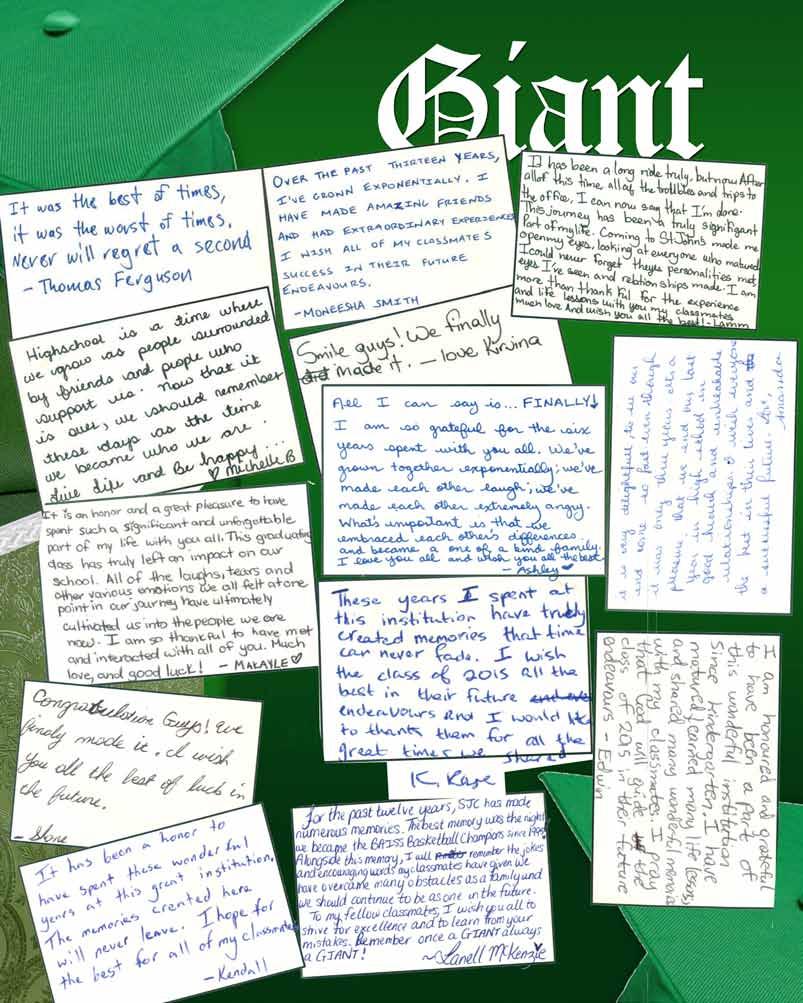 Giant
It was the best of times,
it was the worst of times.
Never will regret a second
- Thomas Ferguson
OVER THE PAST THIRTEEN YEARS,
I'VE GROWN EXPONENTIALLY. I
HAVE MADE AMAZING FRIENDS
AND HAD EXTRAORDINARY EXPERIENCES
I WISH ALL OF MY CLASSMATES
SUCCESS IN THEIR FUTURE
ENDEAVOURS.
-MONEESHA SMITH
It has been a long ride truly, but now After
all of this time, all ay the and trips to
the office, I can now say that I'm done.
This journey has been a truly significant
Part of my life. Coming to St John's made me
open my eyes, looking at everyone who matured
I could never forget the personalities met,
eyes I've seen and relationships made. I am
more than thankful for the experience
and life lessons with you my classmates
much love And wish you all the best! - Lamm
Highschool is a time where
we grow as people surrounded
by friends and people who
support us. Now that it
is over, we should remember
these days as the time
we became who we are.
Live Life and Be happy...
♡ Michelle B
Smile guys! We finally
did made it. — love Kirvina
All I can say is... FINALLY!
I am so grateful for the six
years spent with you all. We've
grown together exponentially; we've
made each other laugh; we've
made each other extremely angry.
What's important is that we
embraced each other's differences
and became a one of a kind family.
I love you all and wish you all the best.
- Ashley ♡
it is very delightful, to see our
end come so fast even though
it was only three years it's a
pleasure that we end our last
year in high school in
good health and unbreakable
relationships. I wish everyone
the best in their lives and
a successful future. - Love,
Amanda
It is an honor and a great pleasure to have
spent such a significant and unforgettable
part of my life with you all. This graduating
class has truly left an impact on our
school. All of the laughs, tears and
other various emotions we all felt at one
point in our journey have ultimately
cultivated us into the people we are
now. I am so thankful to have met
and interacted with all of you. Much
love, and good luck! - MAKAYLE ♡
These years I spent at
this institution have truely
created memories that time
can never fade. I wish
the class of 2015 all the
best in their future and eve
endeavours And I would like
to thank them for all the
great times we shared
K. Rage
I am honoured and grateful
to have been a part of
this wonderful institution
Since kindergarten. I have
matured, earned many life lessons
and shared many wonderful memories
with my classmates. I pray
that God will guide the
class of 2015 in their future
endeavours - Edwin
Congratulation Guys! We
finely made it. I wish
you all the best of luck in
the future.
- Shone
It has been a honor to
have spent these wonderful
years at this great institution.
The memories created here
will never leave. I hope for
the best for all of my classmates
- Kendall
for the past twelve years, SJC has made
numerous memories. The best memory was the night
we became the BAISS Basketball Champions since 1998
Alongside this memory, I will remember the jokes
and encouraging words my classmates have given. We
have overcame many obstacles as a family and
we should continue to be as one in the future.
To my fellow classmates, I wish you all to
strive for excellence and to learn from your
mistakes. Remember once a GIANT always
a GIANT!
~Lanell McKenzie